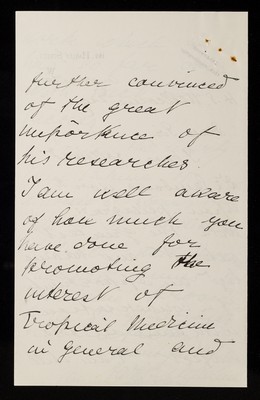 further convinced
of the great
importance of
his researches.
I am well aware
of how much you
have done for
promoting the
interest of
Tropical Medicine
in general and